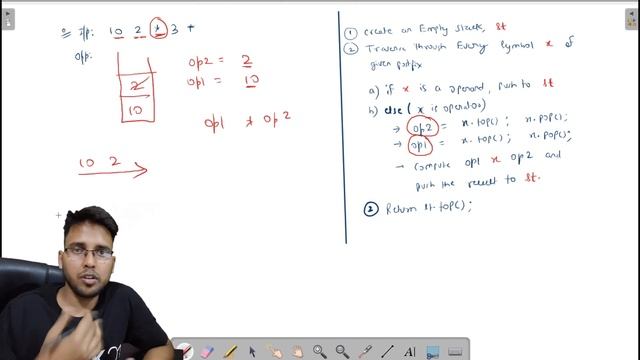 i/p: 10 2 * 3 +
o/p:
2
10
op2 = 2
op1 = 10
op1 * op2
10 2
① create an Empty stack, st
② Traverse through Every symbol x of
given postfix
a) if x is a operand, push to st
b) else (x is operator)
→ op2 = x.top(); x.pop();
→ op1 = x.top(); x.pop();
→ compute op1 x op2 and
push the result to st.
③ Return st.top();